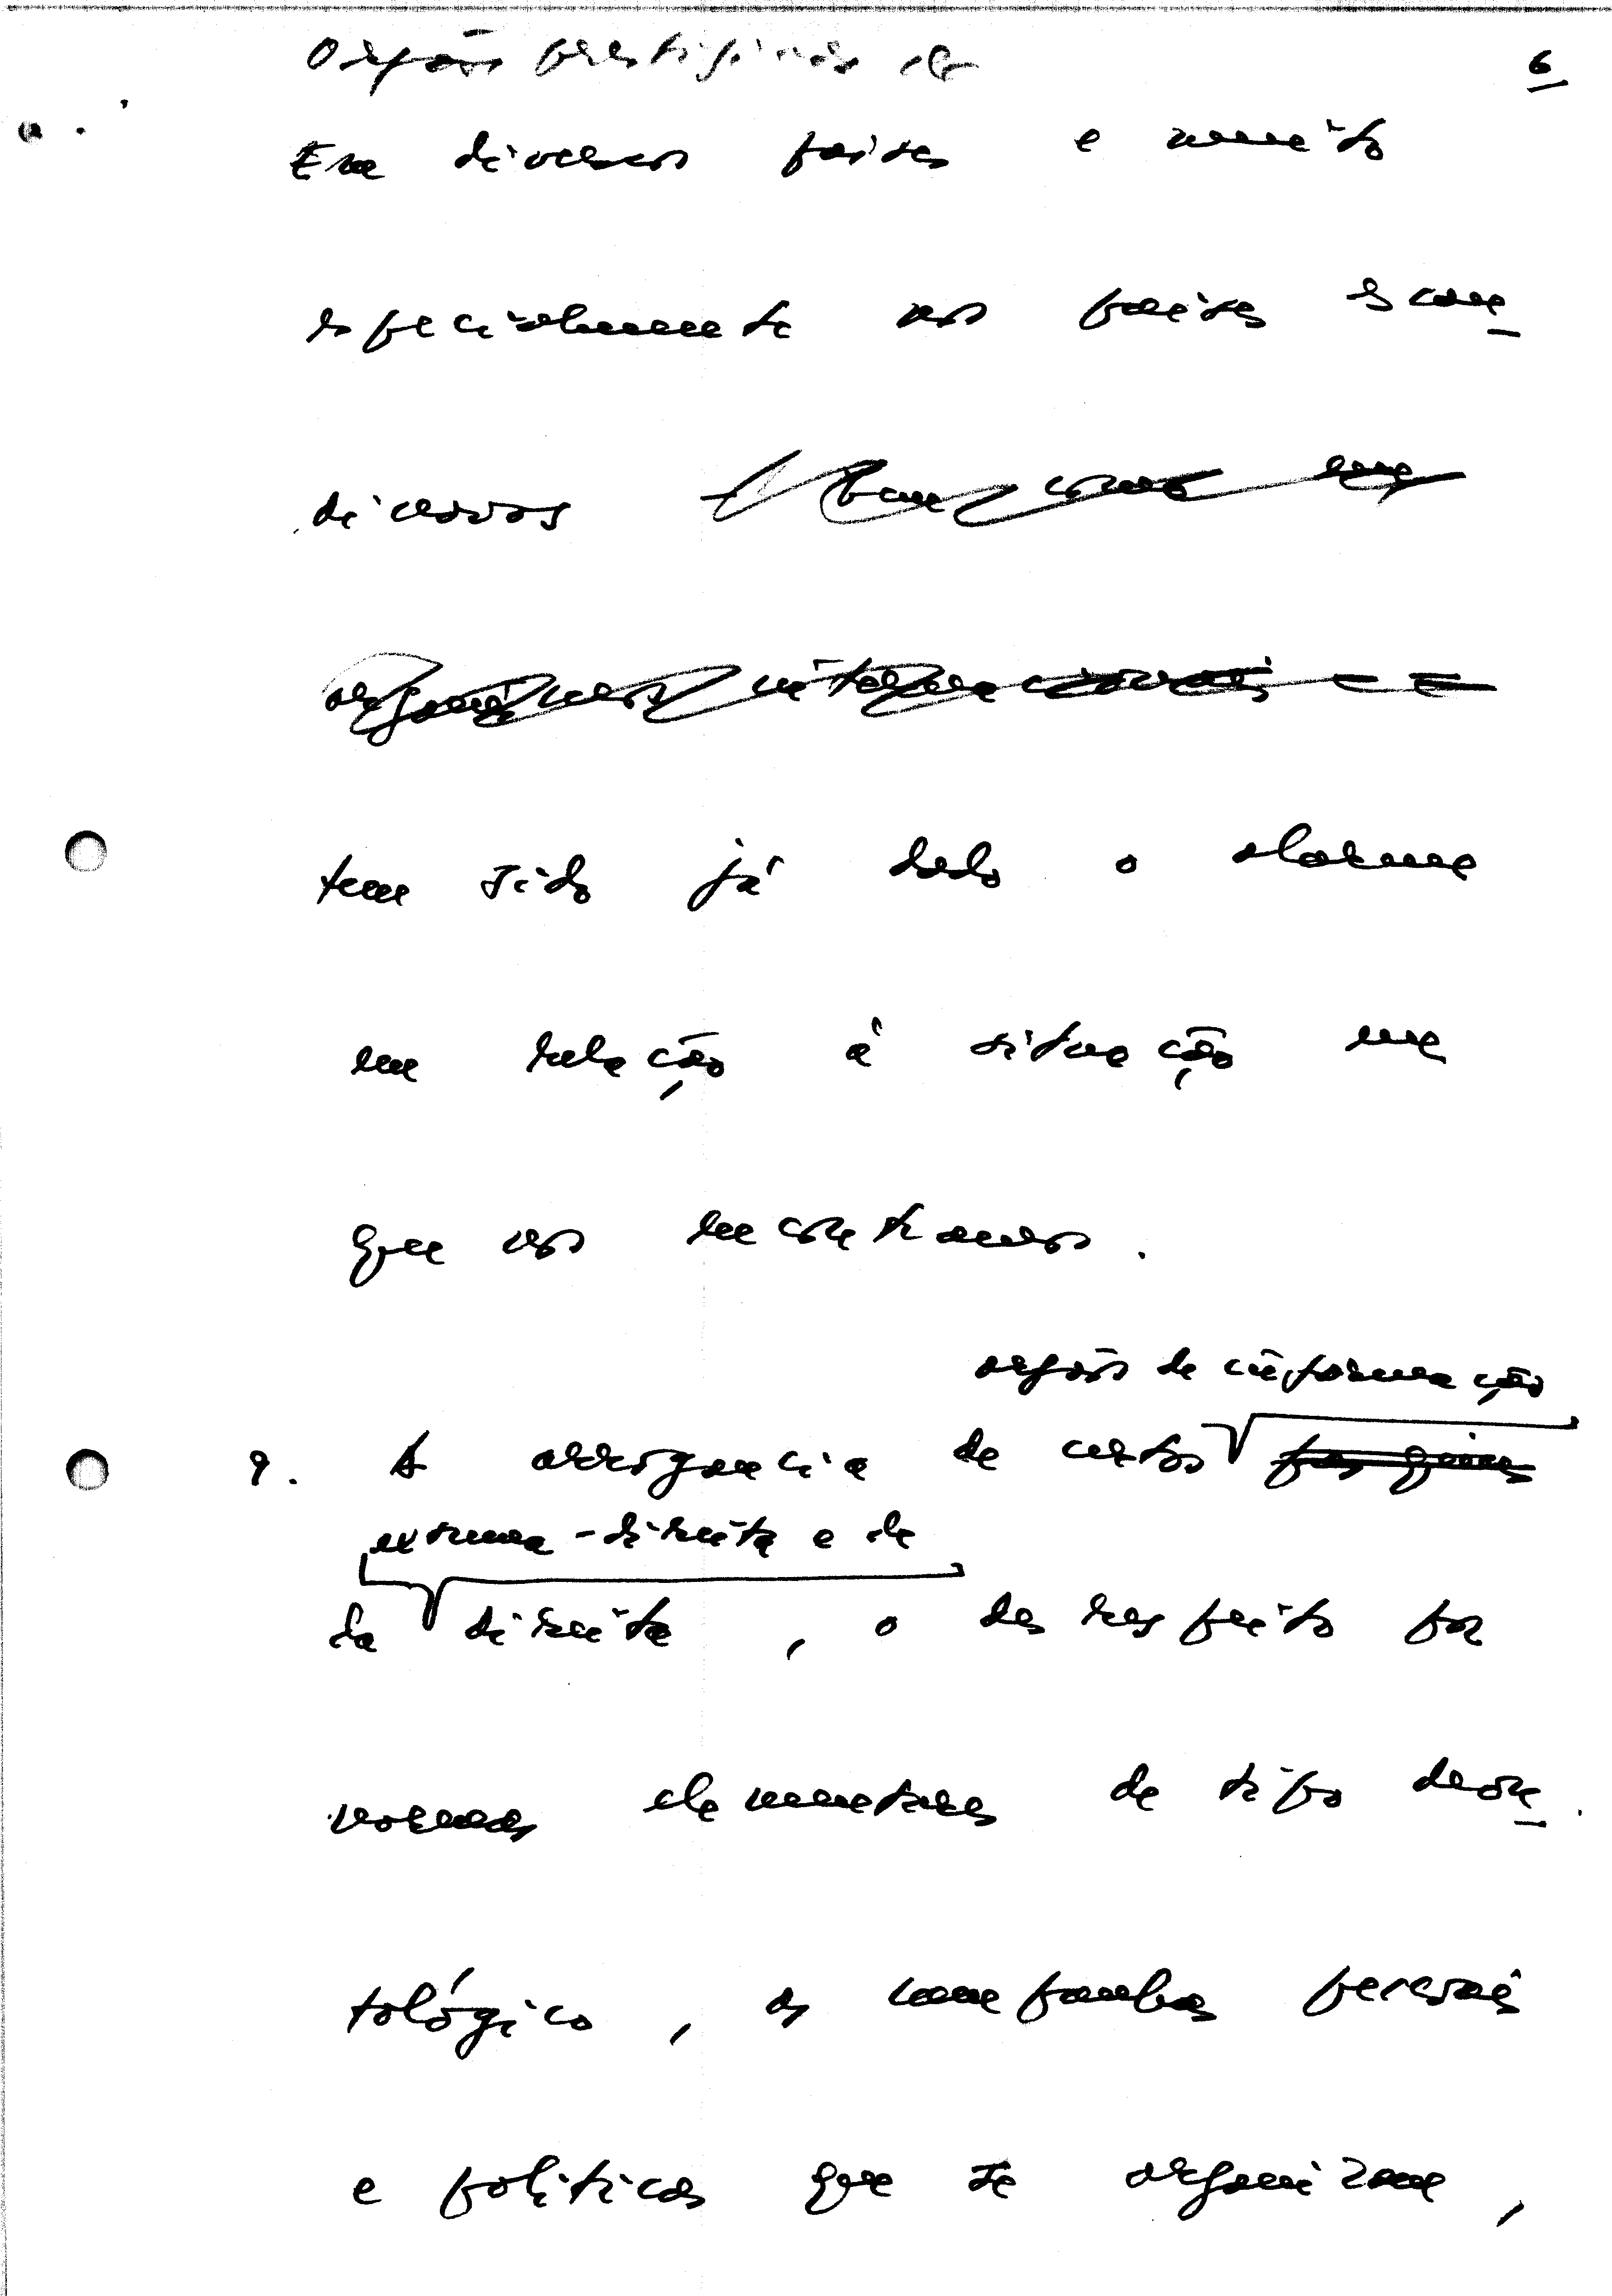 Orgãos prestigiosos de
6
Em diversos países e muito
especialmente nos países escan-
dinavos
tem sido já dado o alarme
em relação à situação em
que nos encontramos.
orgãos de informação
9. A arrogancia de certos pasquins
extrema-direita e de
da direita, o desrespeito por
normas elementares de tipo deon-
tológico, as campanhas pessoais
e politicas que se organizam,